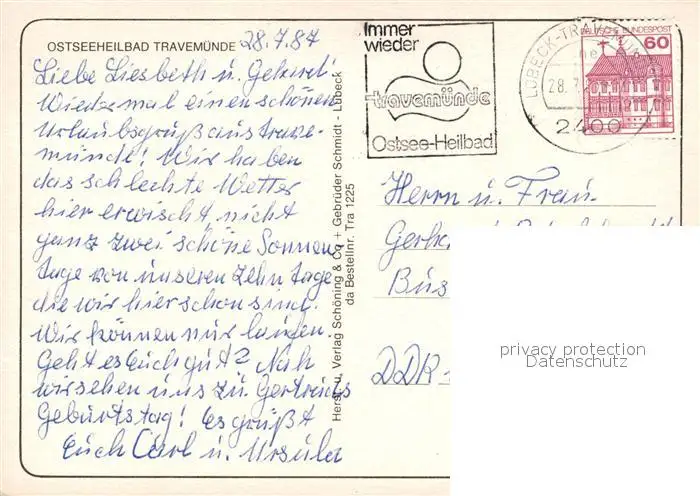 OSTSEEHEILBAD TRAVEMÜNDE 28.7.87
Liebe Liesbeth u. Gehard!
Wiedzemal einen schönen
Urlaubsgruß aus Trave-
münde! Wir haben
das schlechte Wetter
hier erwischt, nicht
ganz zwei schöne Sonnen
tage von unseren zehn Tage
die wir hier schon sind.
Wir können nur laufen.
Geht es Euch gut? Nah
wir sehen uns zu Gertruds
Geburtstag! Es grüßt
Euch Carl u. Ursula
Herst. u. Verlag Schöning & Co + Gebrüder Schmidt - Lübeck
da Bestellnr. Tra 1225
Immer
wieder
travemünde
Ostsee-Heilbad
LÜBECK-TRAVEMÜNDE
28.7.
2400
DEUTSCHE BUNDESPOST
60
Herrn u. Frau
Gerh
Bus
DDR-
privacy protection
Datenschutz